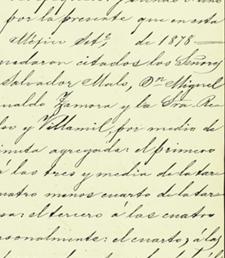 por la presente que en esta
Méjico Set.e, de 1878 —
quedaron citados los Señores
Salvador Malo, Dn Miguel
naldo Zamora y la Sra. Re
los y Villamil, por medio de
inada agregada: el primero
á las tres y media de la tar
uatro menos cuarto de la tar
sa: el tercero á las cuatro
rsonalmente: el cuarto, á las